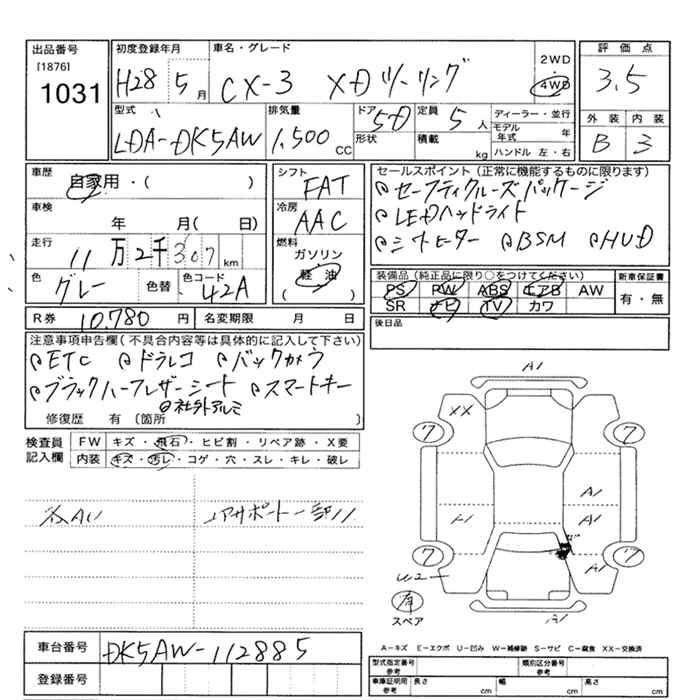 出品番号
[1876]
1031
初度登録年月
H28 5月
車名・グレード
CX-3 XDツーリング
2WD
4WD
評価点
3.5
外装 内装
B 3
型式
LDA-DK5AW
排気量
1,500 CC
ドア 5D
形状
定員 5人
積載 kg
ディーラー・並行
モデル年式 年
ハンドル 左・右
車歴
自家用・( )
車検
年 月( 日)
走行
11万2千307km
色
グレー
色替
色コード
42A
シフト
FAT
冷房
AAC
燃料
ガソリン
軽油
( )
セールスポイント(正常に機能するものに限ります)
セーフティクルーズパッケージ
LEDヘッドライト
シートヒーター BSM HUD
装備品(純正品に限り○をつけてください)
PS PW ABS エアB AW
SR ナビ TV カワ
新車保証書
有・無
後日品
R券 10,780円
名変期限 月 日
注意事項申告欄(不具合内容等は具体的に記入して下さい)
ETC ドラレコ バックカメラ
ブラックハーフレザーシート スマートキー
社外アルミ
修復歴 有(箇所 )
検査員記入欄
FW キズ・飛石・ヒビ割・リペア跡・X要
内装 キズ・汚レ・コゲ・穴・スレ・キレ・破レ
A1
XX
7
7
A1
A1
A1
7
7
U2
有
スペア
A-キズ E-エクボ U-凹み W-補修跡 S-サビ C-腐食 XX-交換済
車台番号
DK5AW-112885
登録番号
型式指定番号
参考
類別区分番号
参考
車庫証明用
参考
長さ cm
幅 cm
高さ cm